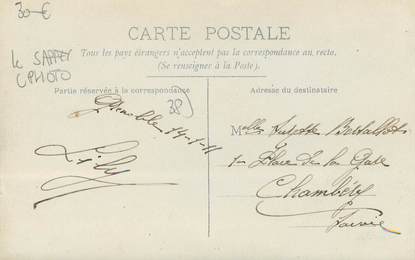 30 €
le SAPPEY
CPHOTO
38
CARTE POSTALE
Tous les pays étrangers n'acceptent pas la correspondance au recto.
(Se renseigner à la Poste).
Partie réservée à la correspondance
Grenoble 14-1-11
Lily
Adresse du destinataire
Melle
Place de la Gare
Chambéry
Savoie